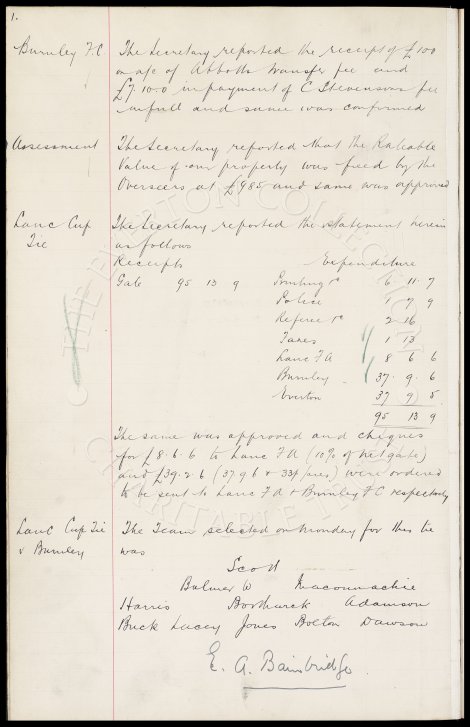 1.
Burnley F.C. The Secretary reported the receipt of £100
on a/c of Abbotts transfer fee and
£7.10.0 in payment of C Stevensons fee
in full and same was confirmed
Assessment The Secretary reported that the Rateable
Value of our property was fixed by the
Overseers at £985 and same was approved
Lanc Cup The Secretary reported the statement herein
Tie as follows
Receipts Expenditure
Gate 95 13 9 Printing &c 6 11 7
Police 1 7 9
Referee &c 2 16
Taxes 1 13
Lanc F A 8 6 6
Burnley 37 9 6
Everton 37 9 5
95 13 9
The same was approved and cheques
for £8.6.6 to Lanc F A (10% of net gate)
and £39.2.6 (37 9 6 + 33/- ) were ordered
to be sent to Lanc F A & Burnley F C respectively
Lanc Cup Tie The Team selected on Monday for this tie
v Burnley was
Scott
Balmer W Maconnachie
Harris Borthwick Adamson
Buck Lacey Jones Bolton Dawson
E. A. Bainbridge
THE EVERTON COLLECTION
CHARITABLE TRUST